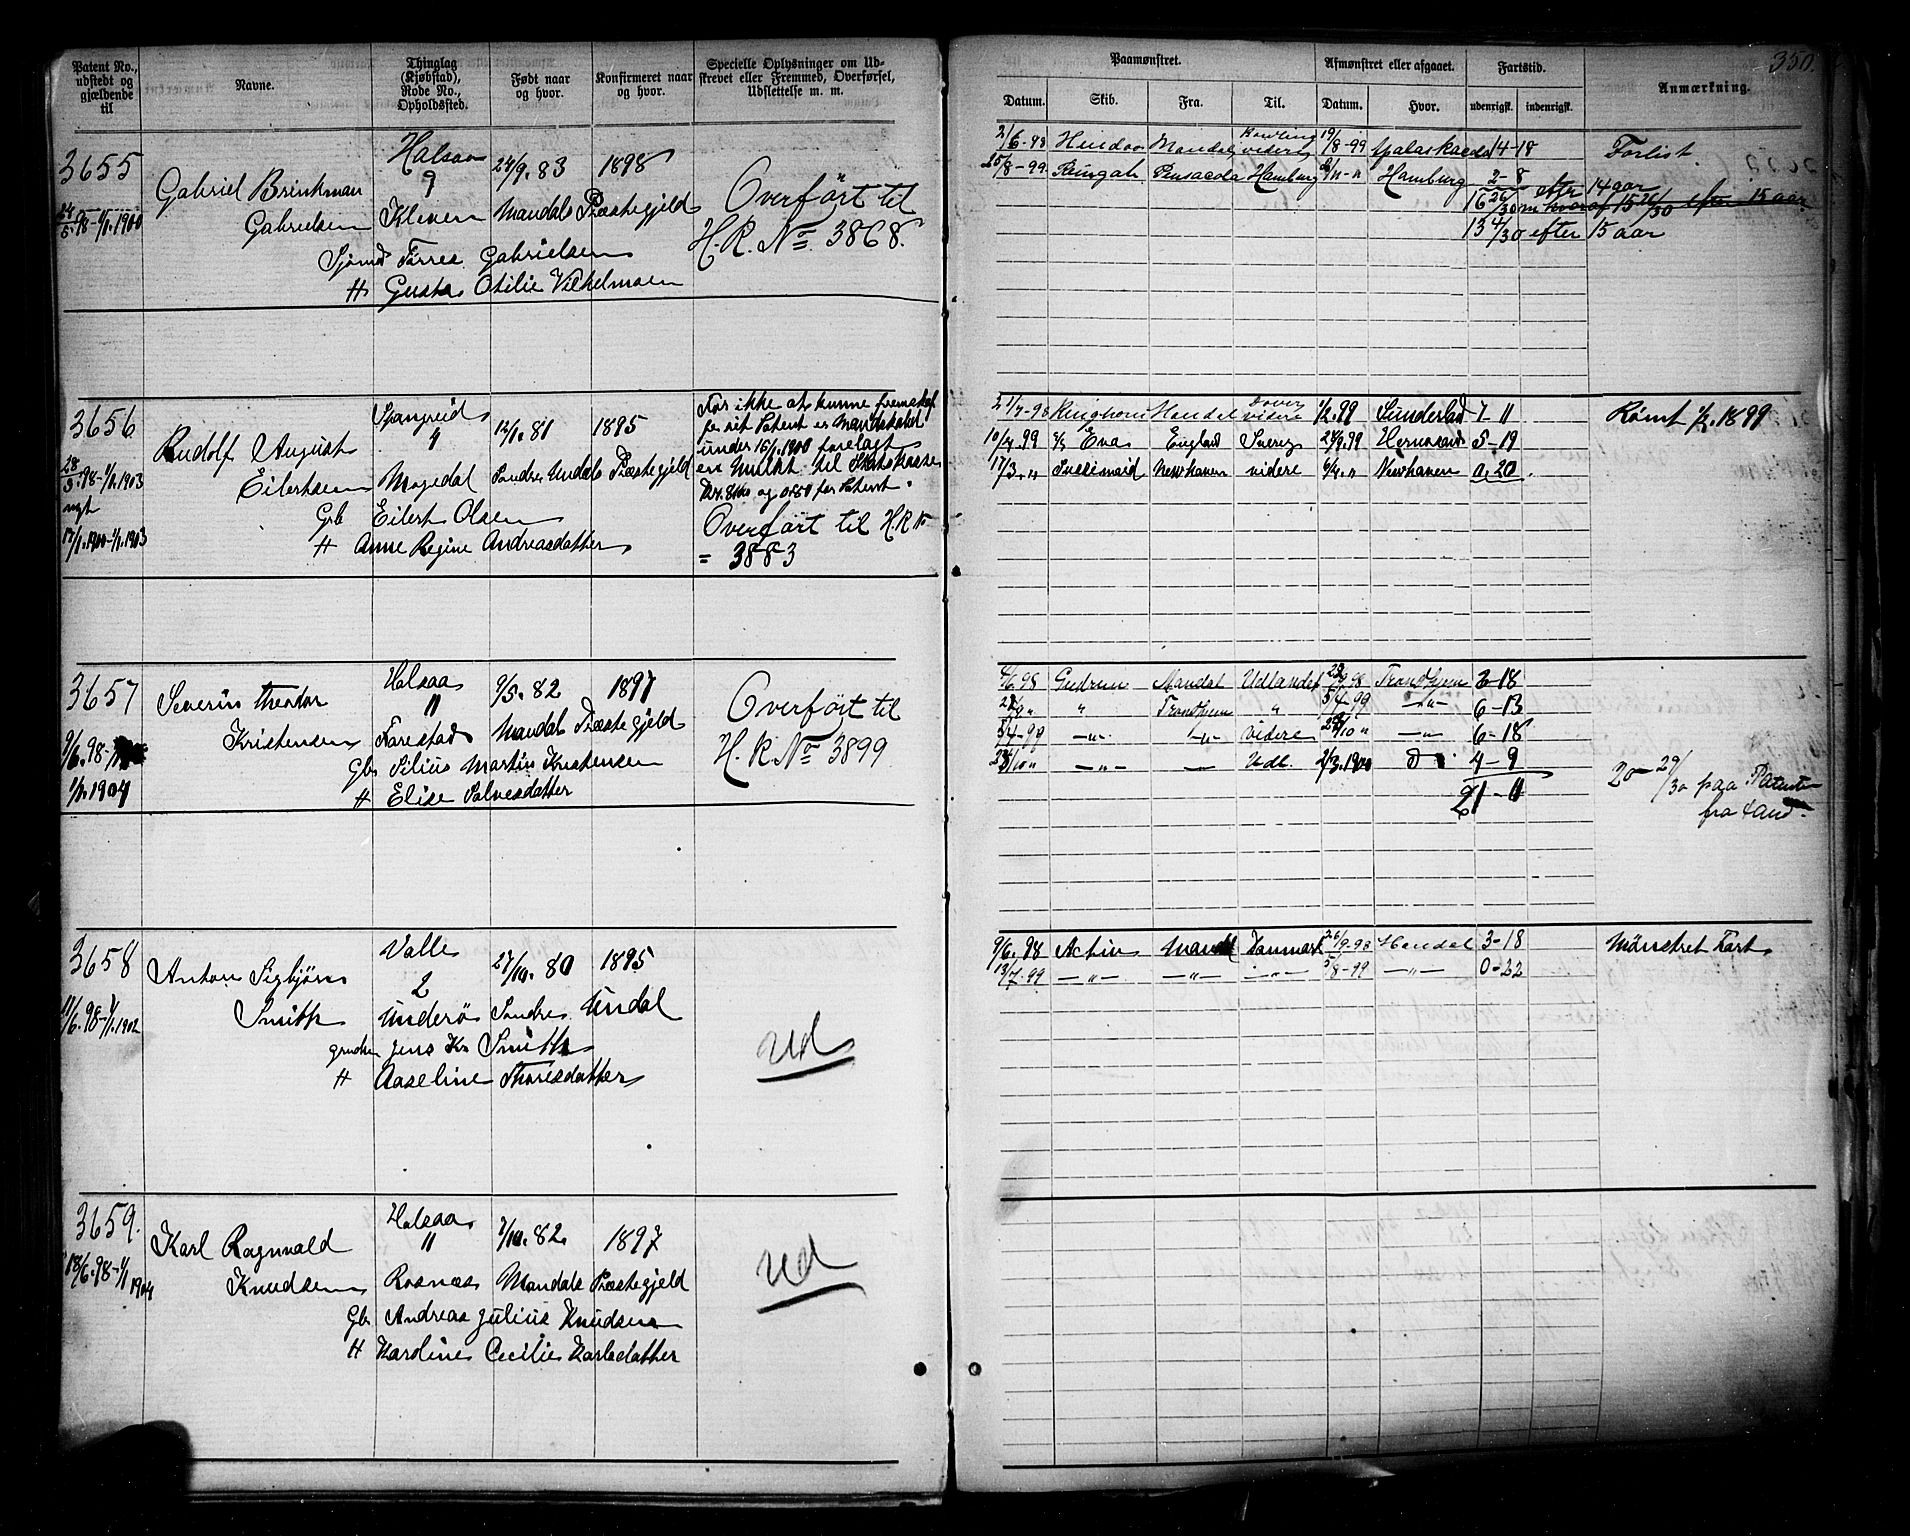 350.
Patent No., udstedt og gjældende til
Navne.
Thinglag (Kjøbstad), Rode No., Opholdssted.
Født naar og hvor.
Konfirmeret naar og hvor.
Specielle Oplysninger om Udskrevet eller Fremmed, Overførsel, Udslettelse m. m.
Paamønstret.
Afmønstret eller afgaaet.
Fartstid.
Anmærkning.
Datum. Skib. Fra. Til. Datum. Hvor. udenrigsk. indenrigsk.
3655 Halsaa 24/9.83 1898
Gabriel Brinkman 9 Overført til
24/5.98-1/1.1900 Gabrielsen Kleven Mandals Præstegjeld H.R.No. 3868.
Sjømd Tørres Gabrielsen
H Gusta Otilie Vilhelmsen
21/6-98 Hindoo Mandal videre 19/8-99 14-18 Forlist.
25/8-99 Pensacola Hamburg Hamburg 2-8
16 26/30 efter 14 aar
15 26/30 efter 15 aar
13 4/30 efter 15 aar
3656 Spangreid 12/1.81 1895
Rudolf August 4
28/5.98-1/1.1903 Eilertsen Møgedal Søndre Undals Præstegjeld
nyt
17/1.1900-1/1.1903
Gb Eilert Olsen
H Anne Regine Andreasdatter
For ikke at kunne fremskaf
fe sit Patent er Mandskabet
under 15/1.1900 forelagt
en Mulkt til Statskassen
Kr. 8.00 og 0.50 for Patent.
Overført til H.R.No
= 3883
21/7-98 Ringhorn Mandal Dover videre 1/2.99 Sunderland 7-11 Rømt 1/2.1899
10/4.99 Eva England Sverig 29/9.99 Hernøsand 5-19
17/3 " Newhaven videre Newhaven 0.20
3657 Halsaa 9/5.82 1897
Severin Theodor 11 Overført til
9/6.98- Kristensen Farestad Mandals Præstegjeld H.R.No 3899
1/1.1904
Gb Silius Martin Kristensen
H Elise Salvesdatter
6.98 Gudrun Mandal Udlandet 9.98 Trondhjem 3-18
" Trondhjem " 5/4-99 -"- 6-13
5/4-99 -"- -"- videre 10 " -"- 6-18
10 " -"- Udl. 2/3.1900 Do 4-9
21-11
20-29/30 paa Patentet
fra Land.
3658 Valle 27/10.80 1895
Anton Sigbjørn 2
11/6.98-1/1.1902 Smith Underø Søndre Undal
Jens Kr Smith
H Aaseline Thorisdatter
ud
9/6.98 Activ Mandal Danmark 26/9-98 Mandal 3-18 Mønstret Fart
13/7-99 -"- -"- -"- 5/8-99 -"- 0-22
3659. Halsaa 7/10.82. 1897
Karl Ragnvald 11
18/6.98-1/1 1904 Knudsen Rosnæs Mandals Præstegjeld
Gb Andreas Julius Knudsen
H Karoline Cecilie Karlsdatter
ud